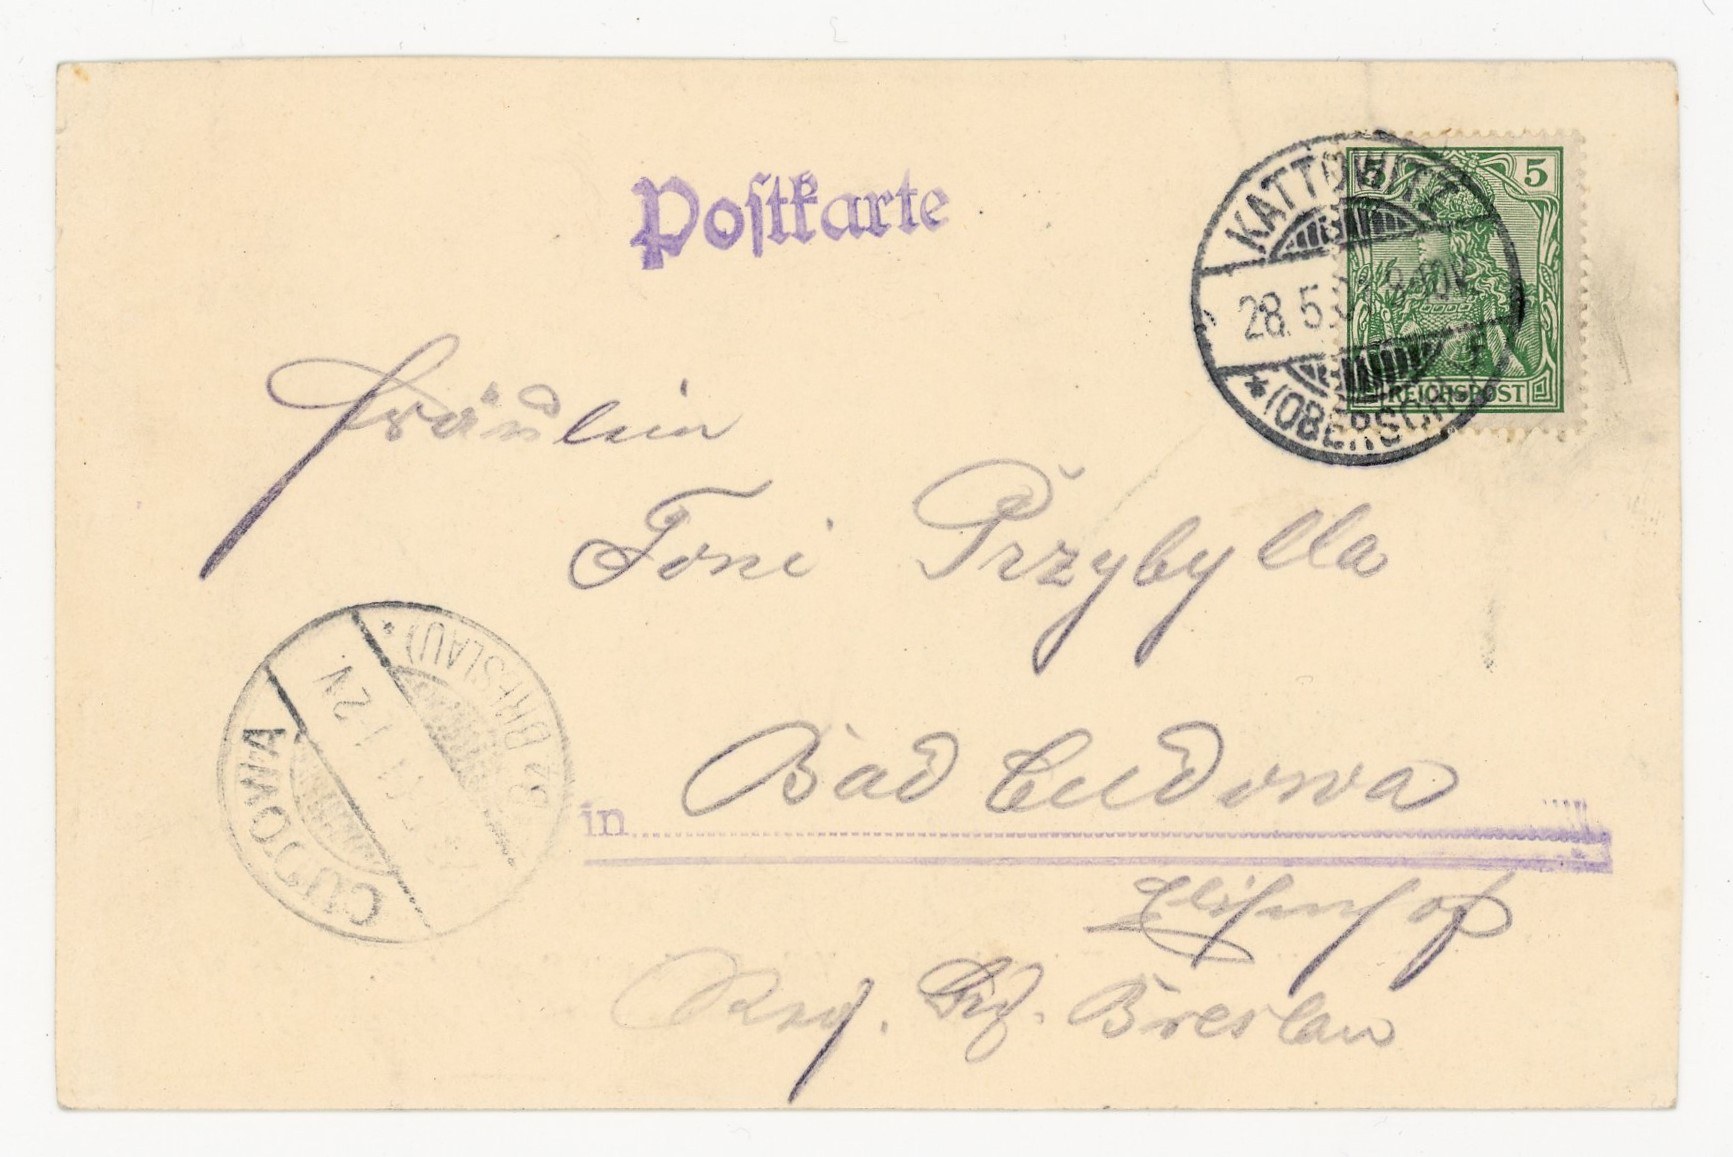 Postkarte
KATTOWITZ
28.5.
* (OBERSCHL.)
5
REICHSPOST
Fräulein
Toni Przybylla
in Bad Cudowa
Reg. Bz. Breslau
CUDOWA
1-2V.
(BZ. BRESLAU) *